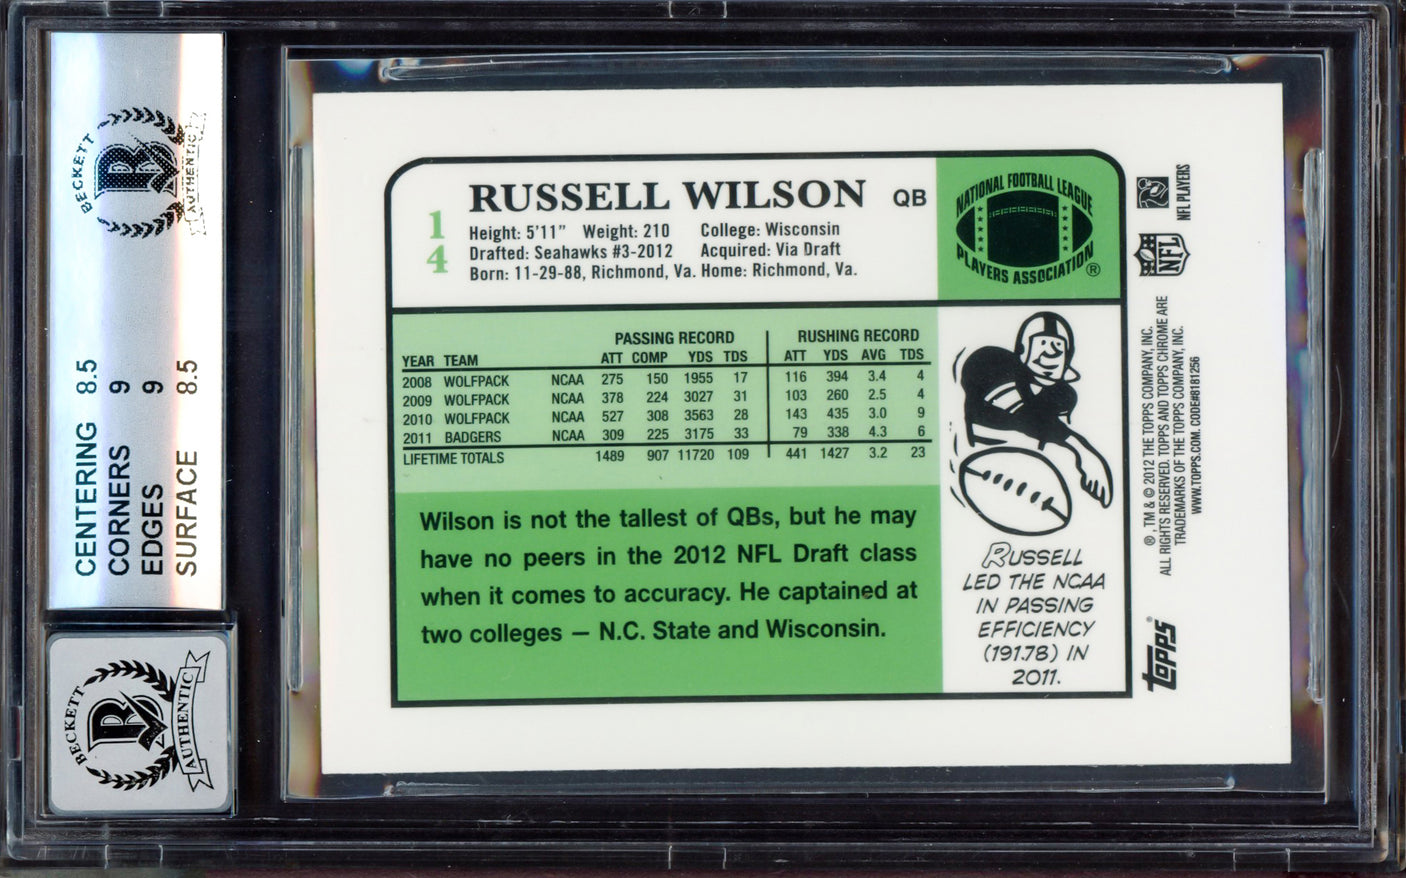 BECKETT
AUTHENTIC
CENTERING 8.5
CORNERS 9
EDGES 9
SURFACE 8.5
BECKETT
AUTHENTIC
14
RUSSELL WILSON QB
Height: 5'11" Weight: 210 College: Wisconsin
Drafted: Seahawks #3-2012 Acquired: Via Draft
Born: 11-29-88, Richmond, Va. Home: Richmond, Va.
NATIONAL FOOTBALL LEAGUE
PLAYERS ASSOCIATION ®
PASSING RECORD RUSHING RECORD
YEAR TEAM ATT COMP YDS TDS ATT YDS AVG TDS
2008 WOLFPACK NCAA 275 150 1955 17 116 394 3.4 4
2009 WOLFPACK NCAA 378 224 3027 31 103 260 2.5 4
2010 WOLFPACK NCAA 527 308 3563 28 143 435 3.0 9
2011 BADGERS NCAA 309 225 3175 33 79 338 4.3 6
LIFETIME TOTALS 1489 907 11720 109 441 1427 3.2 23
Wilson is not the tallest of QBs, but he may
have no peers in the 2012 NFL Draft class
when it comes to accuracy. He captained at
two colleges — N.C. State and Wisconsin.
RUSSELL
LED THE NCAA
IN PASSING
EFFICIENCY
(191.78) IN
2011.
NFL PLAYERS
NFL
®, TM & © 2012 THE TOPPS COMPANY, INC.
ALL RIGHTS RESERVED. TOPPS AND TOPPS CHROME ARE
TRADEMARKS OF THE TOPPS COMPANY, INC.
WWW.TOPPS.COM. CODE#8181256
topps®